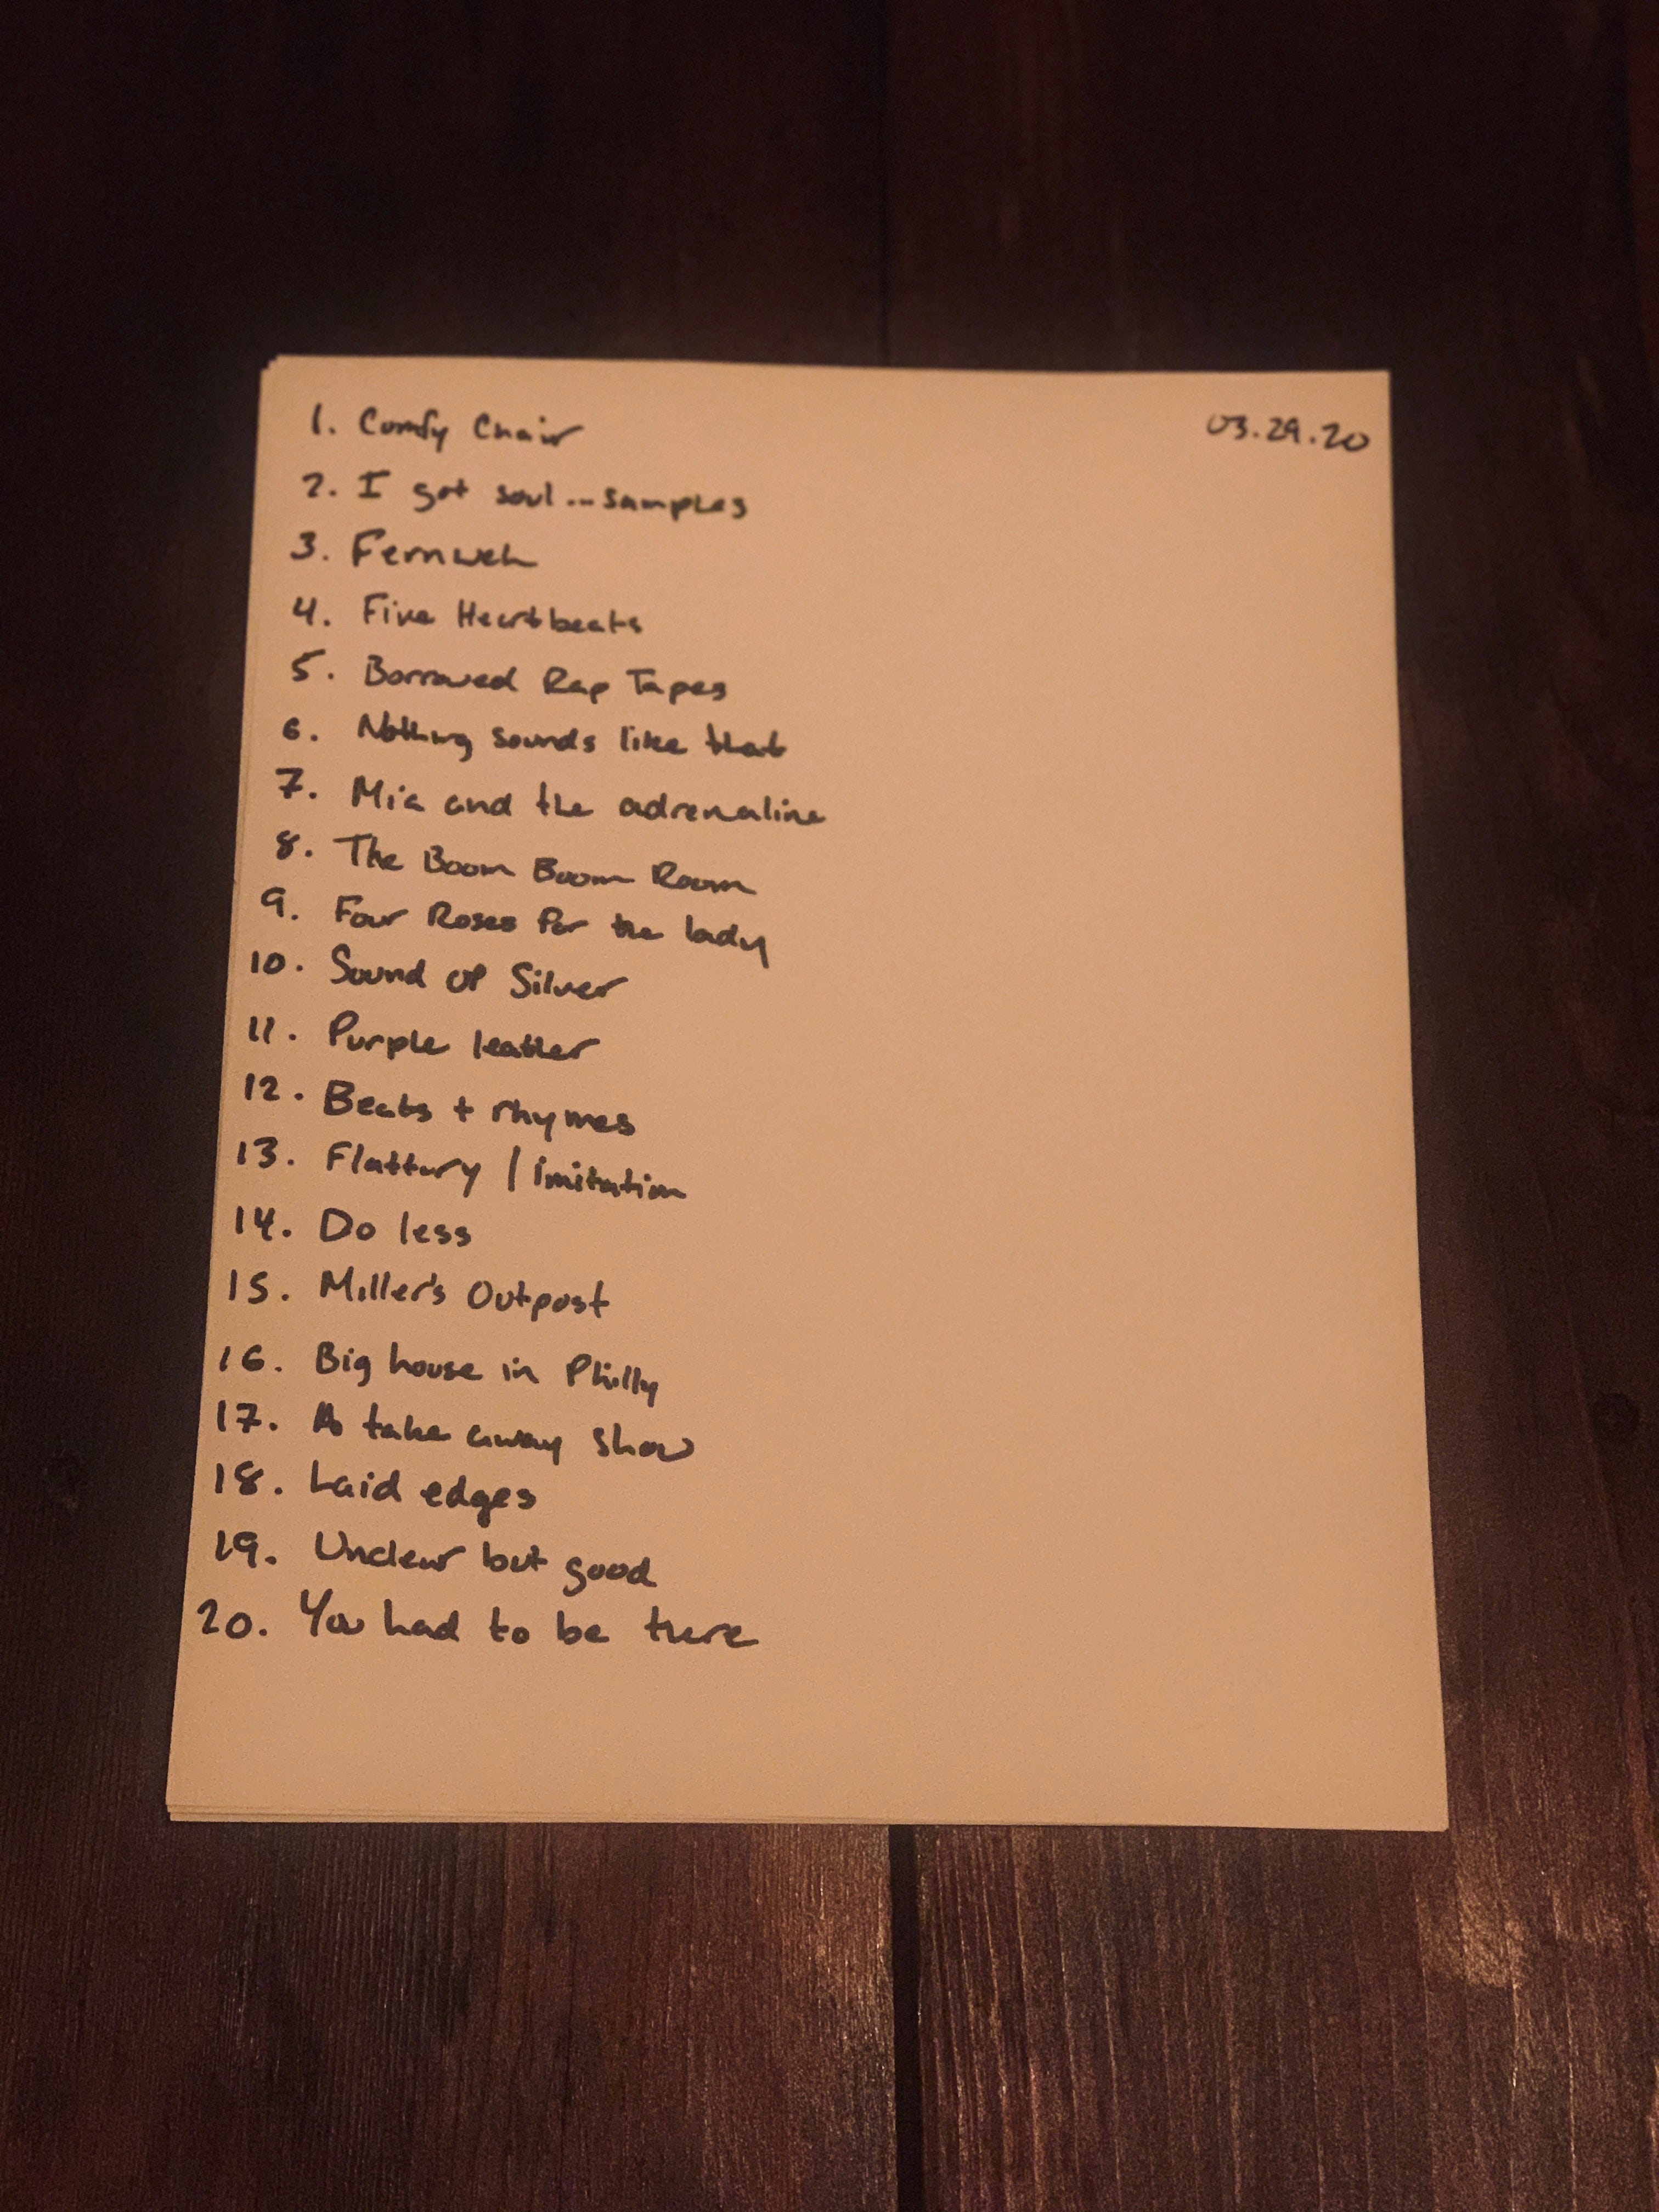 03.29.20
1. Comfy Chair
2. I got soul...samples
3. Fernweh
4. Five Heartbeats
5. Borrowed Rap Tapes
6. Nothing sounds like that
7. Mia and the adrenaline
8. The Boom Boom Room
9. Four Roses for the lady
10. Sound of Silver
11. Purple leather
12. Beats + rhymes
13. Flattery / imitation
14. Do less
15. Miller's Outpost
16. Big house in Philly
17. A take away show
18. Laid edges
19. Unclear but good
20. You had to be there